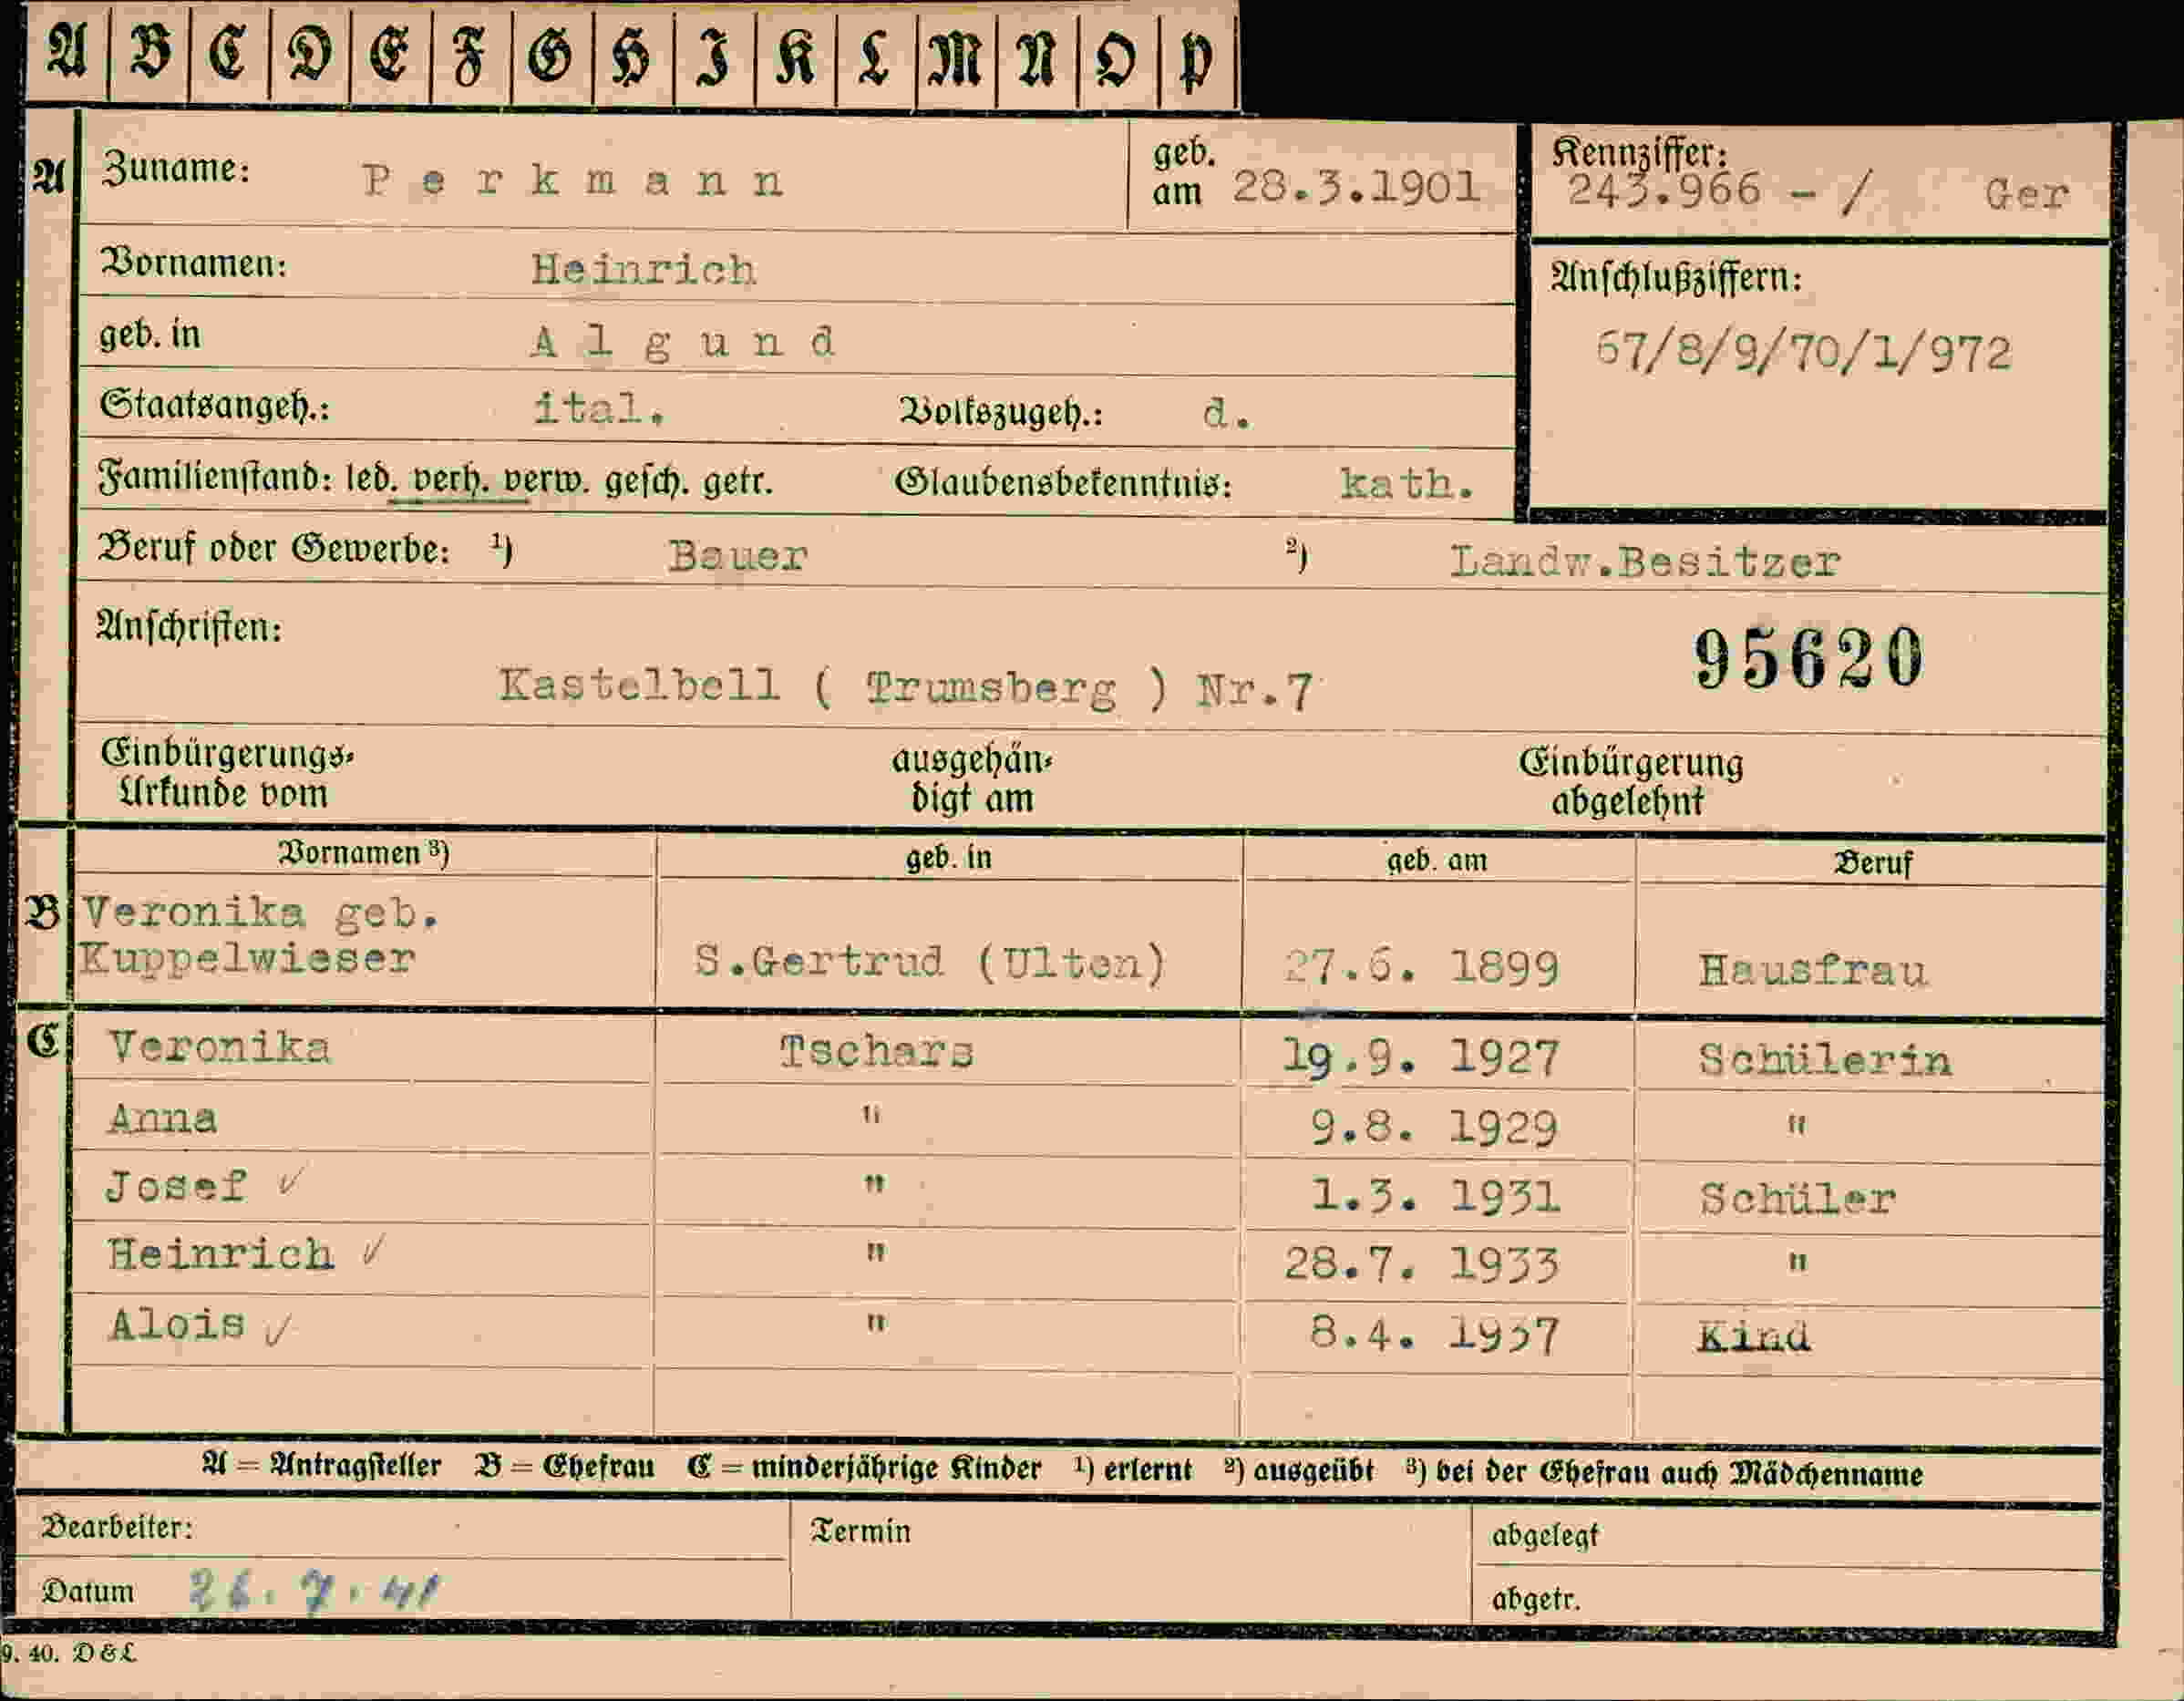 A B C D E F G H I K L M N O P
A Zuname: Perkmann geb. am 28.3.1901 Kennziffer: 243.966 - / Ger
Vornamen: Heinrich
Anschlußziffern:
geb. in Algund
67/8/9/70/1/972
Staatsangeh.: ital. Volkszugeh.: d.
Familienstand: led. verh. verw. gesch. getr. Glaubensbekenntnis: kath.
Beruf oder Gewerbe: 1) Bauer 2) Landw.Besitzer
Anschriften:
95620
Kastelbell ( Trumsberg ) Nr.7
Einbürgerungs- ausgehän- Einbürgerung
Urkunde vom digt am abgelehnt
Vornamen 3) geb. in geb. am Beruf
B Veronika geb.
Kuppelwieser S.Gertrud (Ulten) 27.6. 1899 Hausfrau
C Veronika Tschars 19.9. 1927 Schülerin
Anna " 9.8. 1929 "
Josef ✓ " 1.3. 1931 Schüler
Heinrich ✓ " 28.7. 1933 "
Alois ✓ " 8.4. 1937 Kind
A = Antragsteller B = Ehefrau C = minderjährige Kinder 1) erlernt 2) ausgeübt 3) bei der Ehefrau auch Mädchenname
Bearbeiter: Termin abgelegt
Datum 26.7.41 abgetr.
9. 40. D & L